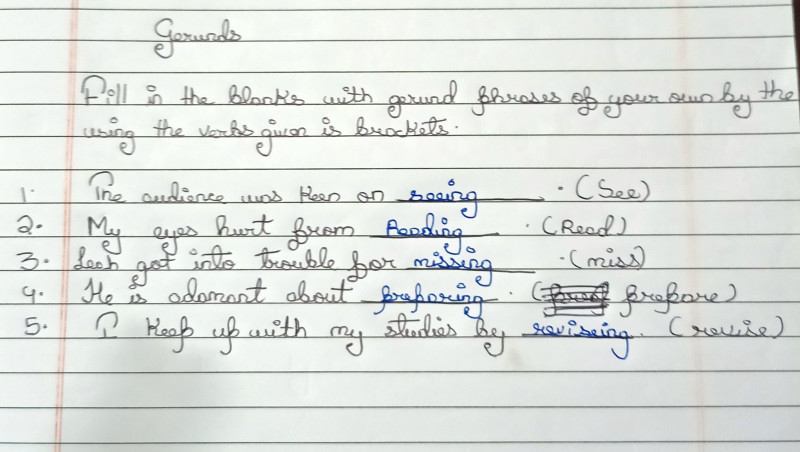 Gerunds
Fill in the blanks with gerund phrases of your own by the
using the verbs given is brackets.
1. The audience was keen on seeing. (See)
2. My eyes hurt from Reading. (Read)
3. Leah got into trouble for missing. (miss)
4. He is adamant about preparing. (prepare)
5. I keep up with my studies by reviseing. (revise)